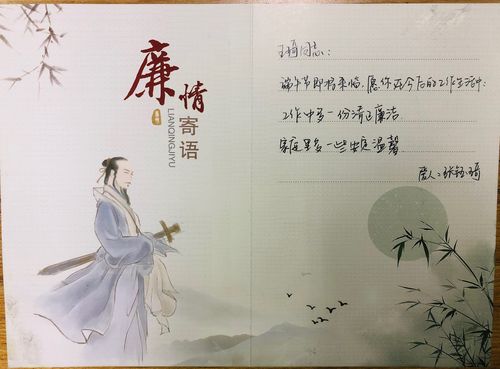 廉情寄语
LIANQINGJIYU
王琦同志：
端午节即将来临，愿你在今后的工作生活中：
工作中多一份清正廉洁
家庭里多一些安定温馨
爱人：张钰琦